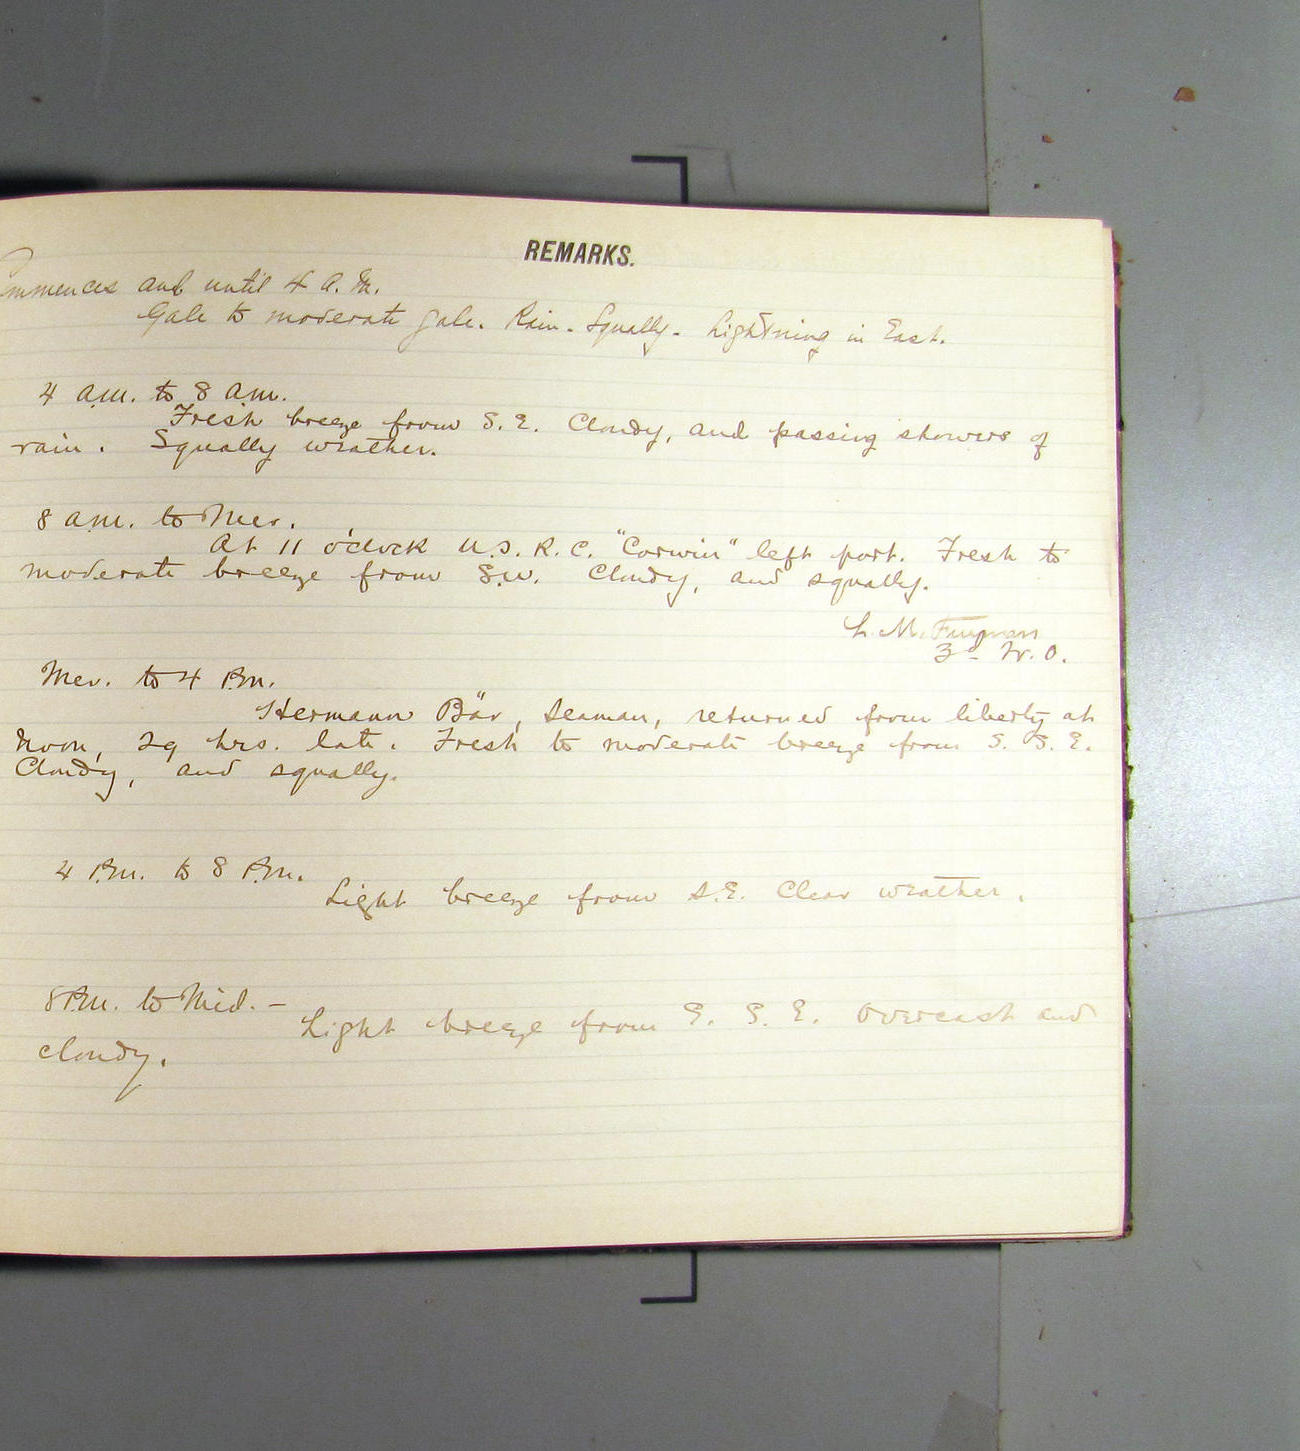 REMARKS.
Commences and until 4 A.M.
Gale to moderate gale. Rain. Squally. Lightning in East.
4 a.m. to 8 a.m.
Fresh breeze from S.E. Cloudy, and passing showers of
rain. Squally weather.
8 a.m. to Mer.
At 11 o'clock U.S.R.C. "Corwin" left port. Fresh to
moderate breeze from S.W. Cloudy, and squally.
L. M.
3d W.O.
Mer. to 4 P.m.
Hermann Bär, Seaman, returned from liberty at
Noon, 29 hrs. late. Fresh to moderate breeze from S.S.E.
Cloudy, and squally.
4 P.m. to 8 P.m.
Light breeze from S.E. Clear weather.
8 P.m. to Mid. –
Light breeze from S.S.E. Overcast and
cloudy.